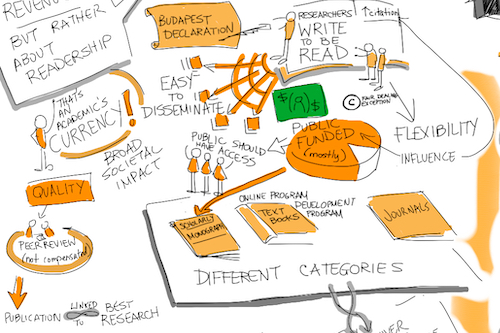 REVENU
BUT RATHER
ABOUT
READERSHIP
BUDAPEST
DECLARATION
RESEARCHERS
WRITE
TO BE
READ
↑citation
THAT'S
AN
ACADEMICS
CURRENCY!
EASY
TO
DISSEMINATE!
$(R)$
© FAIR DEALING
EXCEPTION
FLEXIBILITY
INFLUENCE
PUBLIC
FUNDED
(mostly)
PUBLIC SHOULD
HAVE ACCESS
BROAD
SOCIETAL
IMPACT
QUALITY
PEER REVIEW
(not compensated)
PUBLICATION
LINKED
TO
BEST
RESEARCH
SCHOLARLY
MONOGRAPH
ONLINE PROGRAM
DEVELOPMENT
PROGRAM
TEXT
BOOKS
JOURNALS
DIFFERENT CATEGORIES